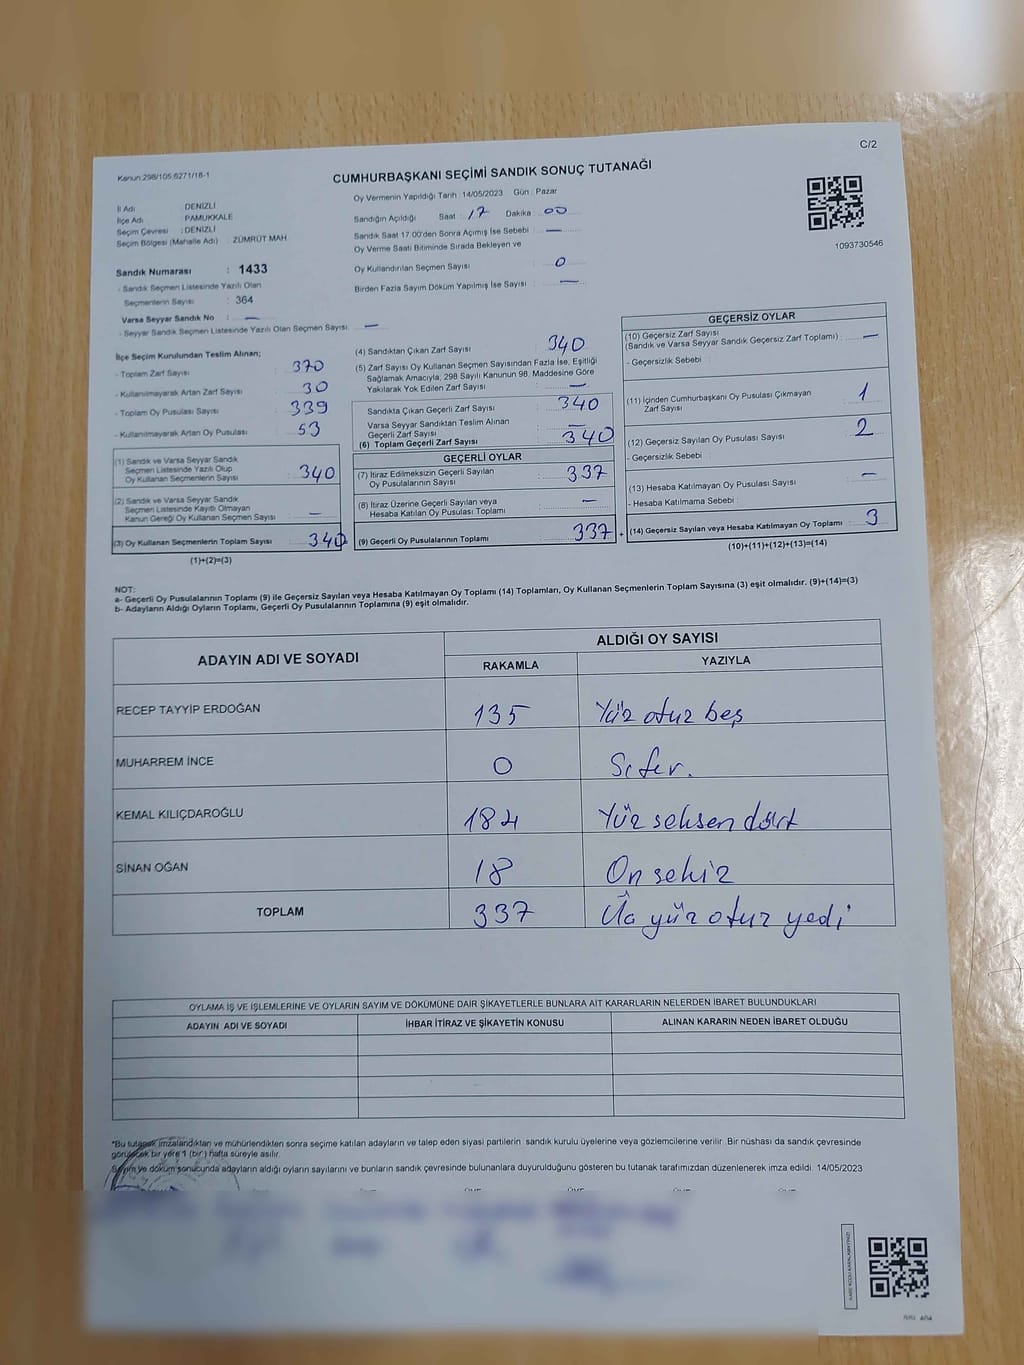 C/2
Kanun:298/105,6271/18-1
CUMHURBAŞKANI SEÇİMİ SANDIK SONUÇ TUTANAĞI
İl Adı : DENİZLİ
İlçe Adı : PAMUKKALE
Seçim Çevresi : DENİZLİ
Seçim Bölgesi (Mahalle Adı) : ZÜMRÜT MAH
Oy Vermenin Yapıldığı Tarih : 14/05/2023 Gün : Pazar
Sandığın Açıldığı Saat : 17 Dakika : 00
Sandık Saat 17.00'den Sonra Açılmış İse Sebebi : —
Oy Verme Saati Bitiminde Sırada Bekleyen ve
Oy Kullandırılan Seçmen Sayısı : 0
Birden Fazla Sayım Döküm Yapılmış İse Sayısı : —
1093730546
Sandık Numarası : 1433
- Sandık Seçmen Listesinde Yazılı Olan
Seçmenlerin Sayısı : 364
Varsa Seyyar Sandık No : —
- Seyyar Sandık Seçmen Listesinde Yazılı Olan Seçmen Sayısı: —
İlçe Seçim Kurulundan Teslim Alınan;
- Toplam Zarf Sayısı : 370
- Kullanılmayarak Artan Zarf Sayısı : 30
- Toplam Oy Pusulası Sayısı : 339
- Kullanılmayarak Artan Oy Pusulası : 53
(1) Sandık ve Varsa Seyyar Sandık
Seçmen Listesinde Yazılı Olup
Oy Kullanan Seçmenlerin Sayısı : 340
(2) Sandık ve Varsa Seyyar Sandık
Seçmen Listesinde Kayıtlı Olmayan
Kanun Gereği Oy Kullanan Seçmen Sayısı : —
(3) Oy Kullanan Seçmenlerin Toplam Sayısı : 340
(1)+(2)=(3)
(4) Sandıktan Çıkan Zarf Sayısı : 340
(5) Zarf Sayısı Oy Kullanan Seçmen Sayısından Fazla İse, Eşitliği
Sağlamak Amacıyla, 298 Sayılı Kanunun 98. Maddesine Göre
Yakılarak Yok Edilen Zarf Sayısı : —
Sandıkta Çıkan Geçerli Zarf Sayısı : 340
Varsa Seyyar Sandıktan Teslim Alınan
Geçerli Zarf Sayısı : —
(6) Toplam Geçerli Zarf Sayısı : 340
GEÇERLİ OYLAR
(7) İtiraz Edilmeksizin Geçerli Sayılan
Oy Pusulalarının Sayısı : 337
(8) İtiraz Üzerine Geçerli Sayılan veya
Hesaba Katılan Oy Pusulası Toplamı : —
(9) Geçerli Oy Pusulalarının Toplamı : 337 +
GEÇERSİZ OYLAR
(10) Geçersiz Zarf Sayısı
(Sandık ve Varsa Seyyar Sandık Geçersiz Zarf Toplamı) : —
- Geçersizlik Sebebi :
(11) İçinden Cumhurbaşkanı Oy Pusulası Çıkmayan
Zarf Sayısı : 1
(12) Geçersiz Sayılan Oy Pusulası Sayısı : 2
- Geçersizlik Sebebi :
(13) Hesaba Katılmayan Oy Pusulası Sayısı : —
- Hesaba Katılmama Sebebi :
(14) Geçersiz Sayılan veya Hesaba Katılmayan Oy Toplamı : 3
(10)+(11)+(12)+(13)=(14)
NOT:
a- Geçerli Oy Pusulalarının Toplamı (9) ile Geçersiz Sayılan veya Hesaba Katılmayan Oy Toplamı (14) Toplamları, Oy Kullanan Seçmenlerin Toplam Sayısına (3) eşit olmalıdır. (9)+(14)=(3)
b- Adayların Aldığı Oyların Toplamı, Geçerli Oy Pusulalarının Toplamına (9) eşit olmalıdır.
ADAYIN ADI VE SOYADI ALDIĞI OY SAYISI
RAKAMLA YAZIYLA
RECEP TAYYİP ERDOĞAN 135 Yüz otuz beş
MUHARREM İNCE 0 Sıfır.
KEMAL KILIÇDAROĞLU 184 Yüz seksen dört
SİNAN OĞAN 18 On sekiz
TOPLAM 337 Üç yüz otuz yedi
OYLAMA İŞ VE İŞLEMLERİNE VE OYLARIN SAYIM VE DÖKÜMÜNE DAİR ŞİKAYETLERLE BUNLARA AİT KARARLARIN NELERDEN İBARET BULUNDUKLARI
ADAYIN ADI VE SOYADI İHBAR İTİRAZ VE ŞİKAYETİN KONUSU ALINAN KARARIN NEDEN İBARET OLDUĞU
*Bu tutanak imzalandıktan ve mühürlendikten sonra seçime katılan adayların ve talep eden siyasi partilerin sandık kurulu üyelerine veya gözlemcilerine verilir. Bir nüshası da sandık çevresinde
görülecek bir yere 1 (bir) hafta süreyle asılır.
Sayım ve döküm sonucunda adayların aldığı oyların sayılarını ve bunların sandık çevresinde bulunanlara duyurulduğunu gösteren bu tutanak tarafımızdan düzenlenerek imza edildi. 14/05/2023